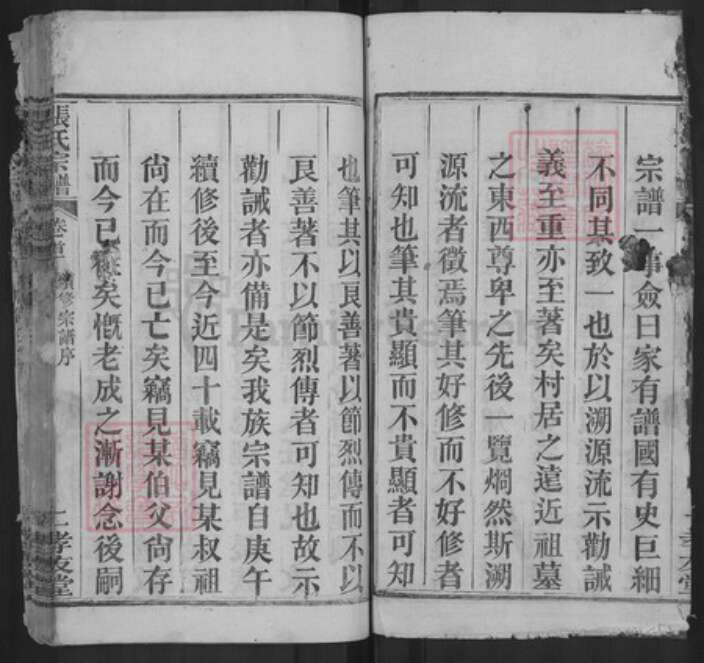 宗譜一事僉曰家有譜國有史巨細
不同其致一也於以溯源流示勸誡
義至重亦至著矣村居之遠近祖墓
之東西尊卑之先後一覽燜然斯溯
源流者徵焉筆其好修而不好修者
可知也筆其貴顯而不貴顯者可知
也筆其以良善著以節烈傳而不以
良善著不以節烈傳者可知也故示
勸誡者亦備是矣我族宗譜自庚午
續修後至今近四十載竊見某叔祖
尙在而今已亡矣竊見某伯父尙存
而今已矣慨老成之漸謝念後嗣
張氏宗譜 卷首 續修宗譜序 二 孝友堂